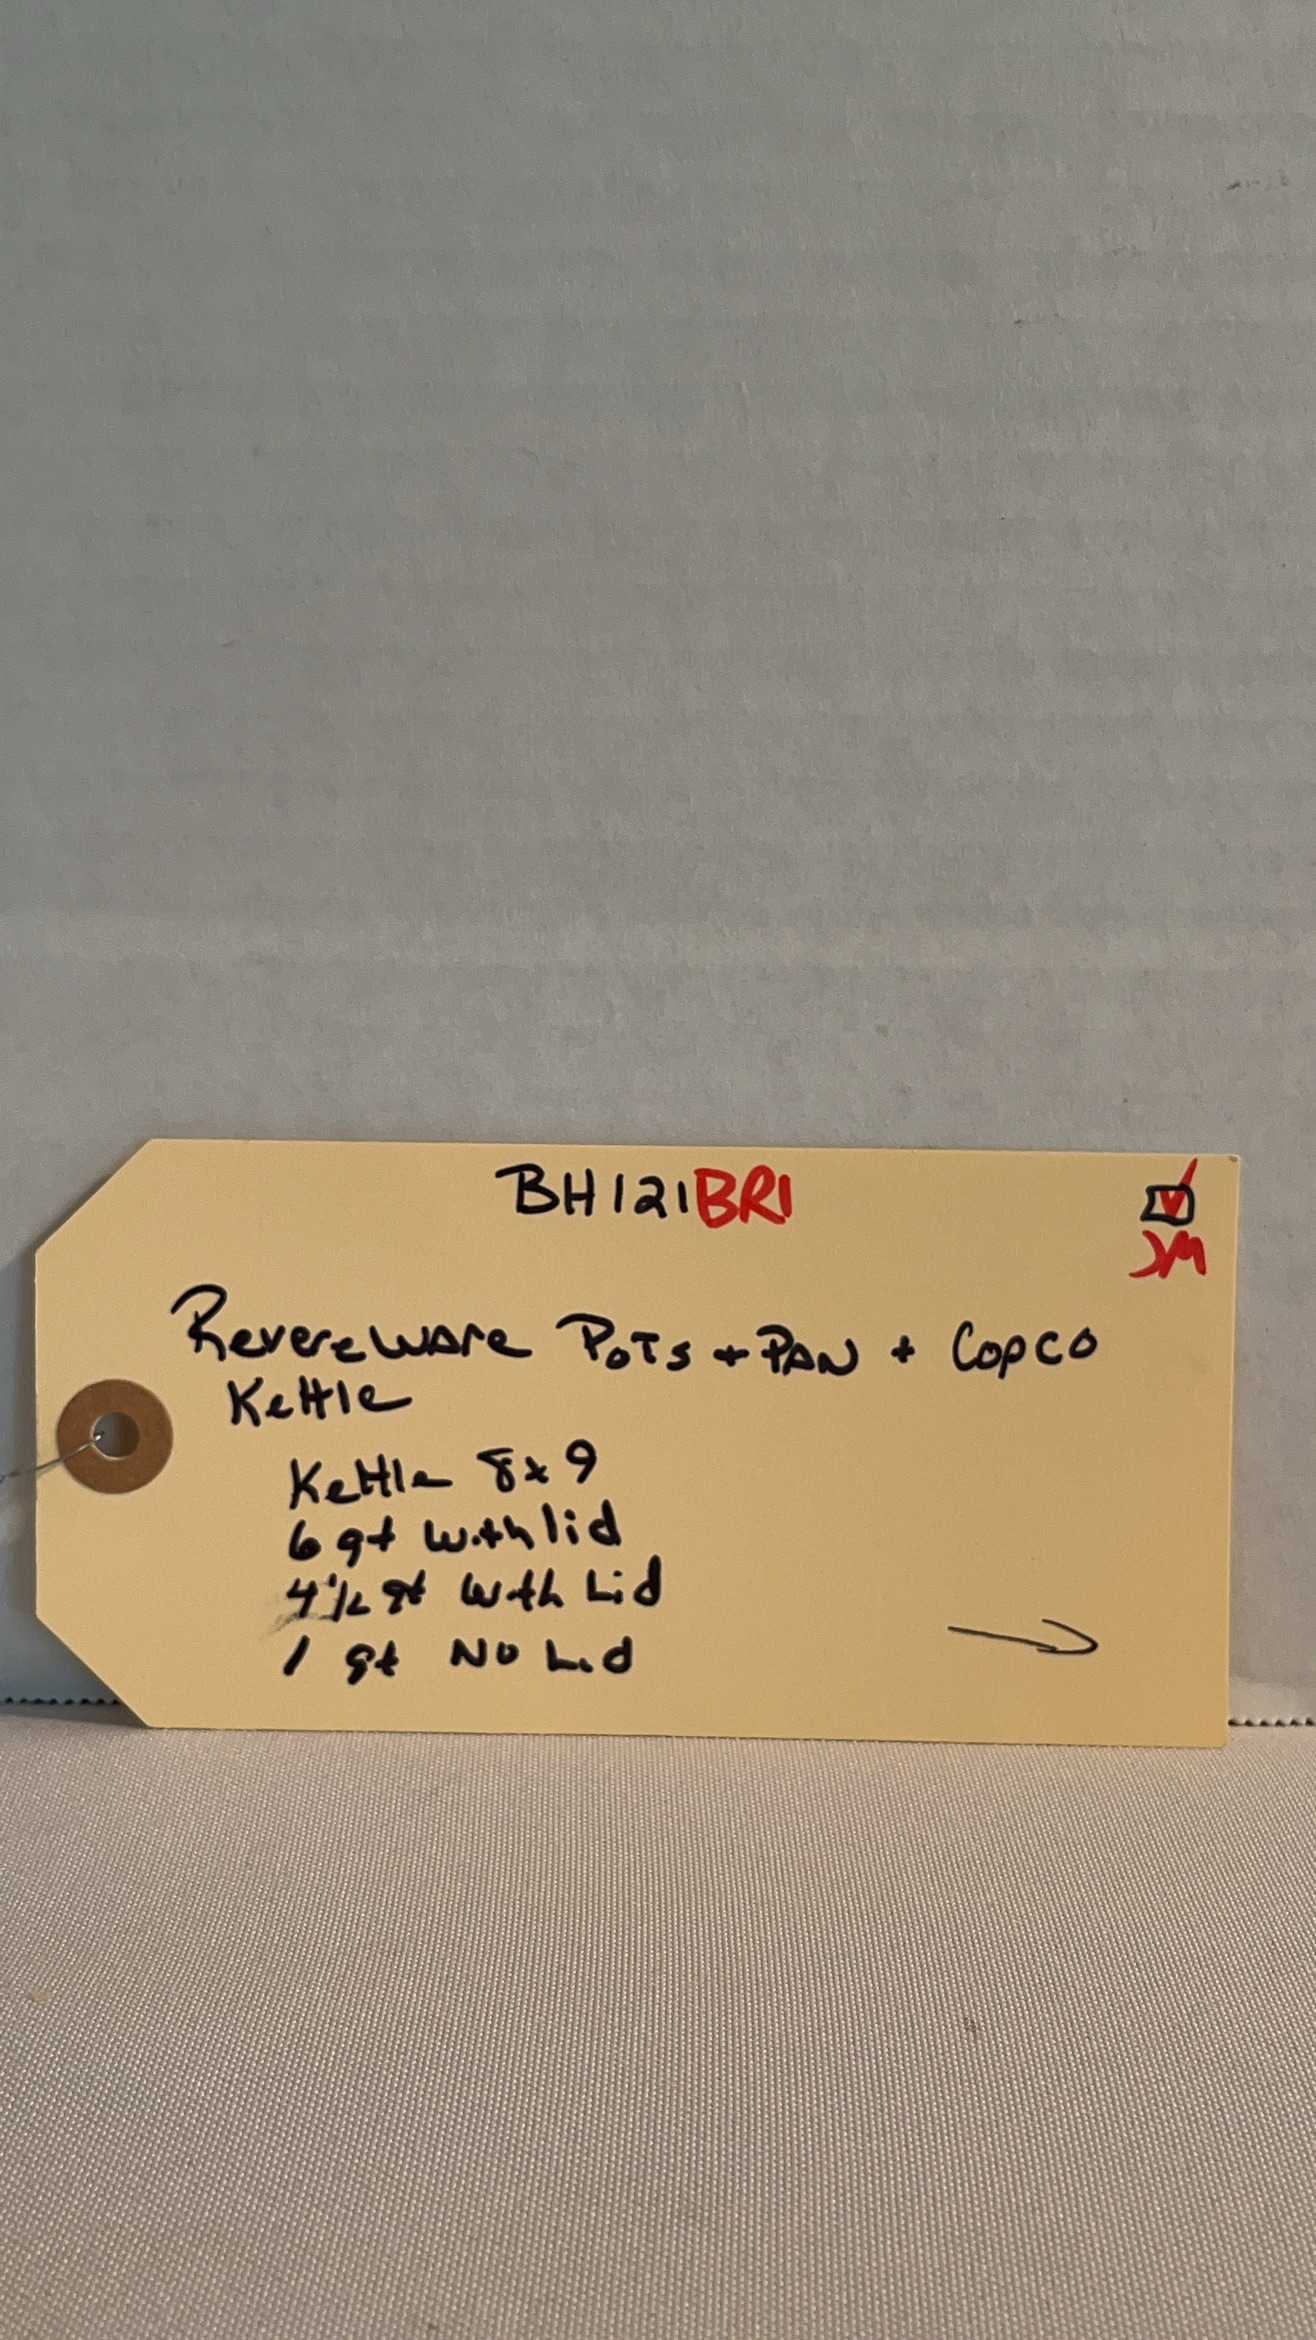 BH121BR1
JM
Revereware Pots + Pan + Copco
Kettle
Kettle 8x9
6 qt with lid
4 1/2 qt with Lid
1 qt No Lid